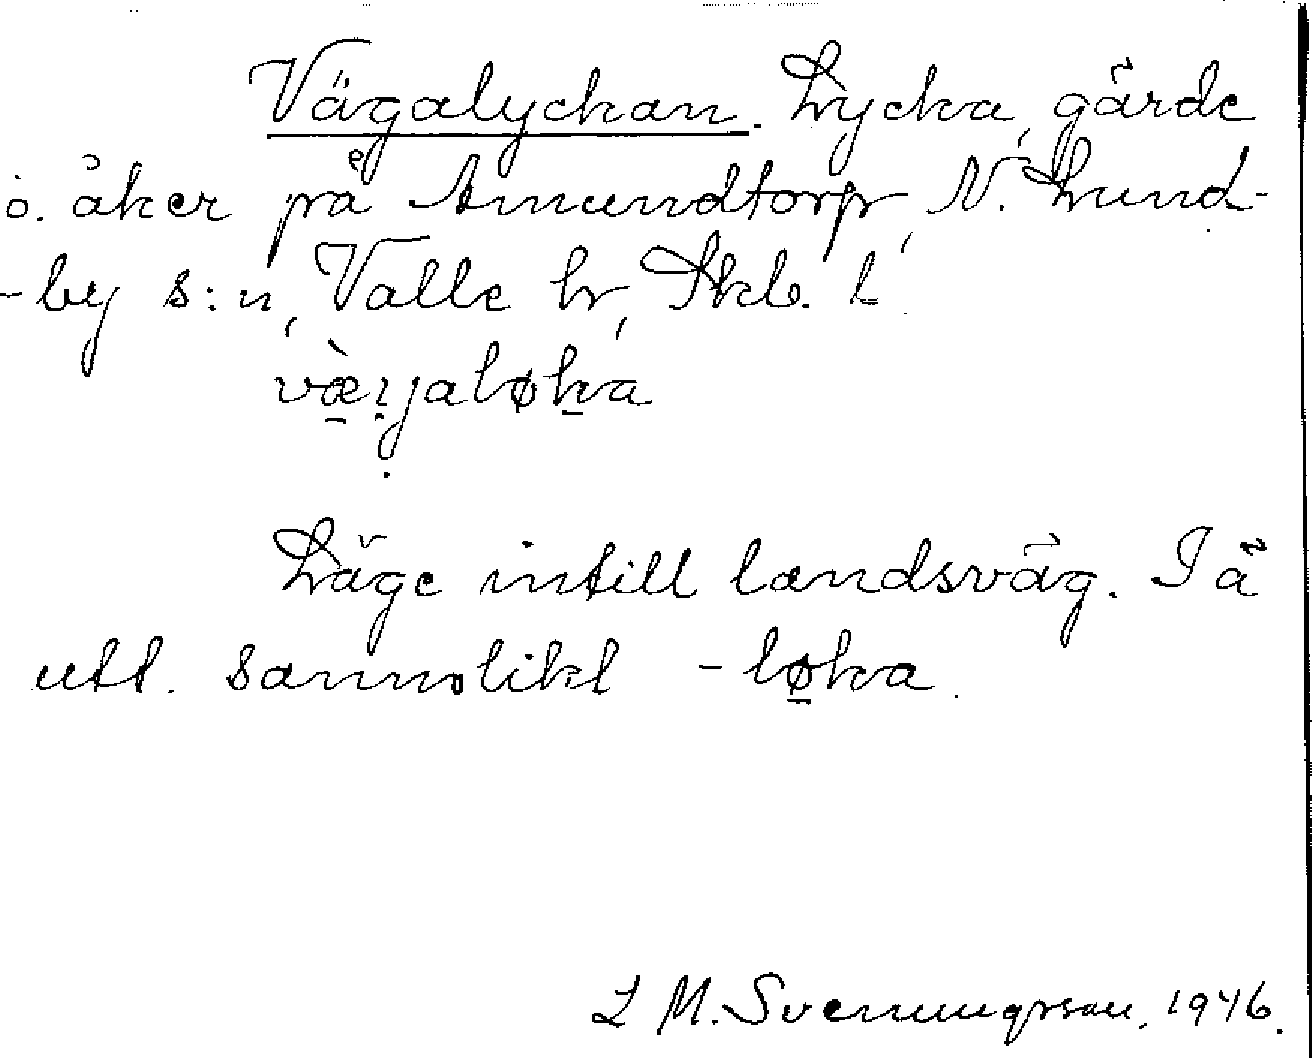 Vägalyckan. Lycka, gärde
o. åker på Amundtorp, N. Lund-
-by s:n, Valle hr, Skb. l.
væ̀ɪjaløka
Läge intill landsväg. I ä
utt. sannolikt -løka.
L M. Svenungsson, 1946.